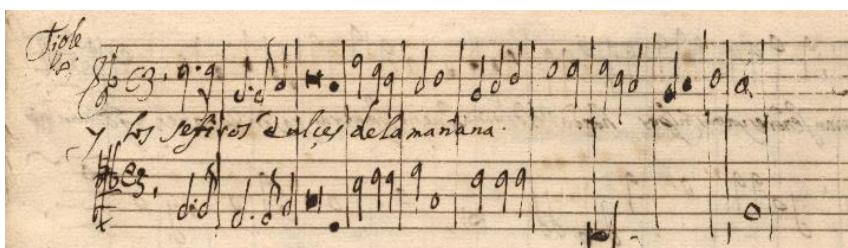 Tiple
lo
Y los sefiros dulçes delamañana.